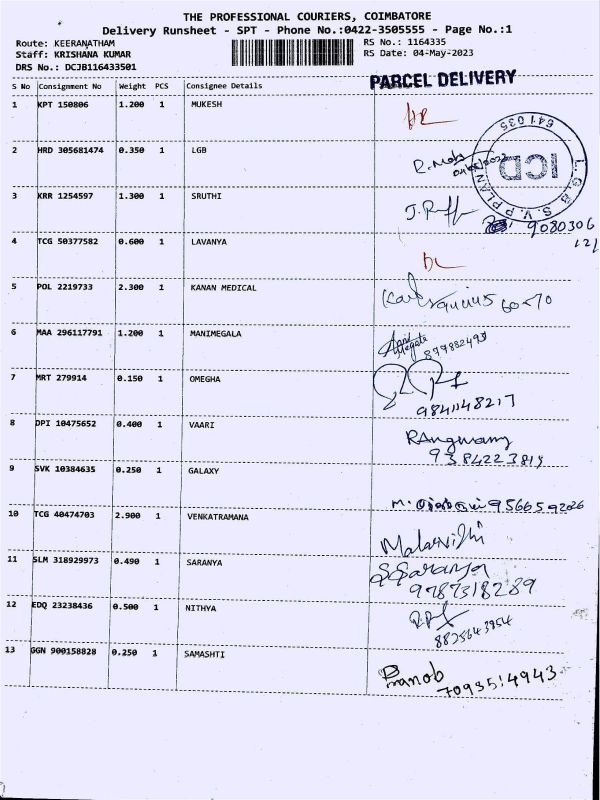 THE PROFESSIONAL COURIERS, COIMBATORE
Delivery Runsheet - SPT - Phone No.:0422-3505555 - Page No.:1
Route: KEERANATHAM RS No.: 1164335
Staff: KRISHANA KUMAR RS Date: 04-May-2023
DRS No.: DCJB116433501
PARCEL DELIVERY
S No Consignment No Weight PCS Consignee Details
1 KPT 150806 1.200 1 MUKESH
2 HRD 305681474 0.350 1 LGB
641 035
ICD
L.G.B S.V.P PLAN
3 KRR 1254597 1.300 1 SRUTHI
9080306
121
4 TCG 50377582 0.600 1 LAVANYA
5 POL 2219733 2.300 1 KANAN MEDICAL
6 MAA 296117791 1.200 1 MANIMEGALA
7 MRT 279914 0.150 1 OMEGHA
9841148217
8 DPI 10475652 0.400 1 VAARI
9384223819
9 SVK 10384635 0.250 1 GALAXY
9566592026
10 TCG 40474703 2.900 1 VENKATRAMANA
Malarvizhi
11 SLM 318929973 0.490 1 SARANYA
S.Saranya
9787318289
12 EDQ 23238436 0.500 1 NITHYA
8825643954
13 GGN 900158828 0.250 1 SAMASHTI
Pranob
7093514943